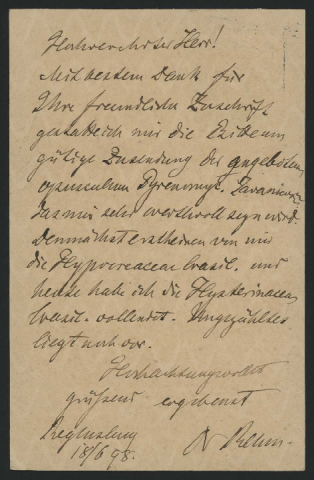 Hochverehrter Herr!
Mit bestem Dank für
Ihre freundliche Zuschrift
gestatte ich mir die Bitte um
gütige Zusendung des angebotenen
opusculum Pyrenomyc.
das mir sehr werthvoll seyn wird.
Demnächst erscheinen von mir
die Hypocreaceae brasil. und
heute habe ich die Hysteriaceae
brasil. vollendet. Ungezähltes
liegt noch vor.
Hochachtungsvollst
grüßend ergebenst
Regensburg Dr Rehm.
18/6 98.